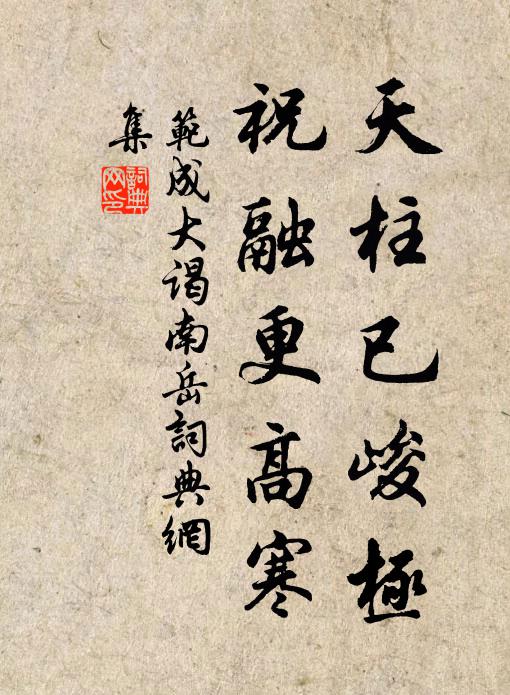 天柱已峻極
祝融更高寒
範成大谒南岳詞典網
集
詞典
网印